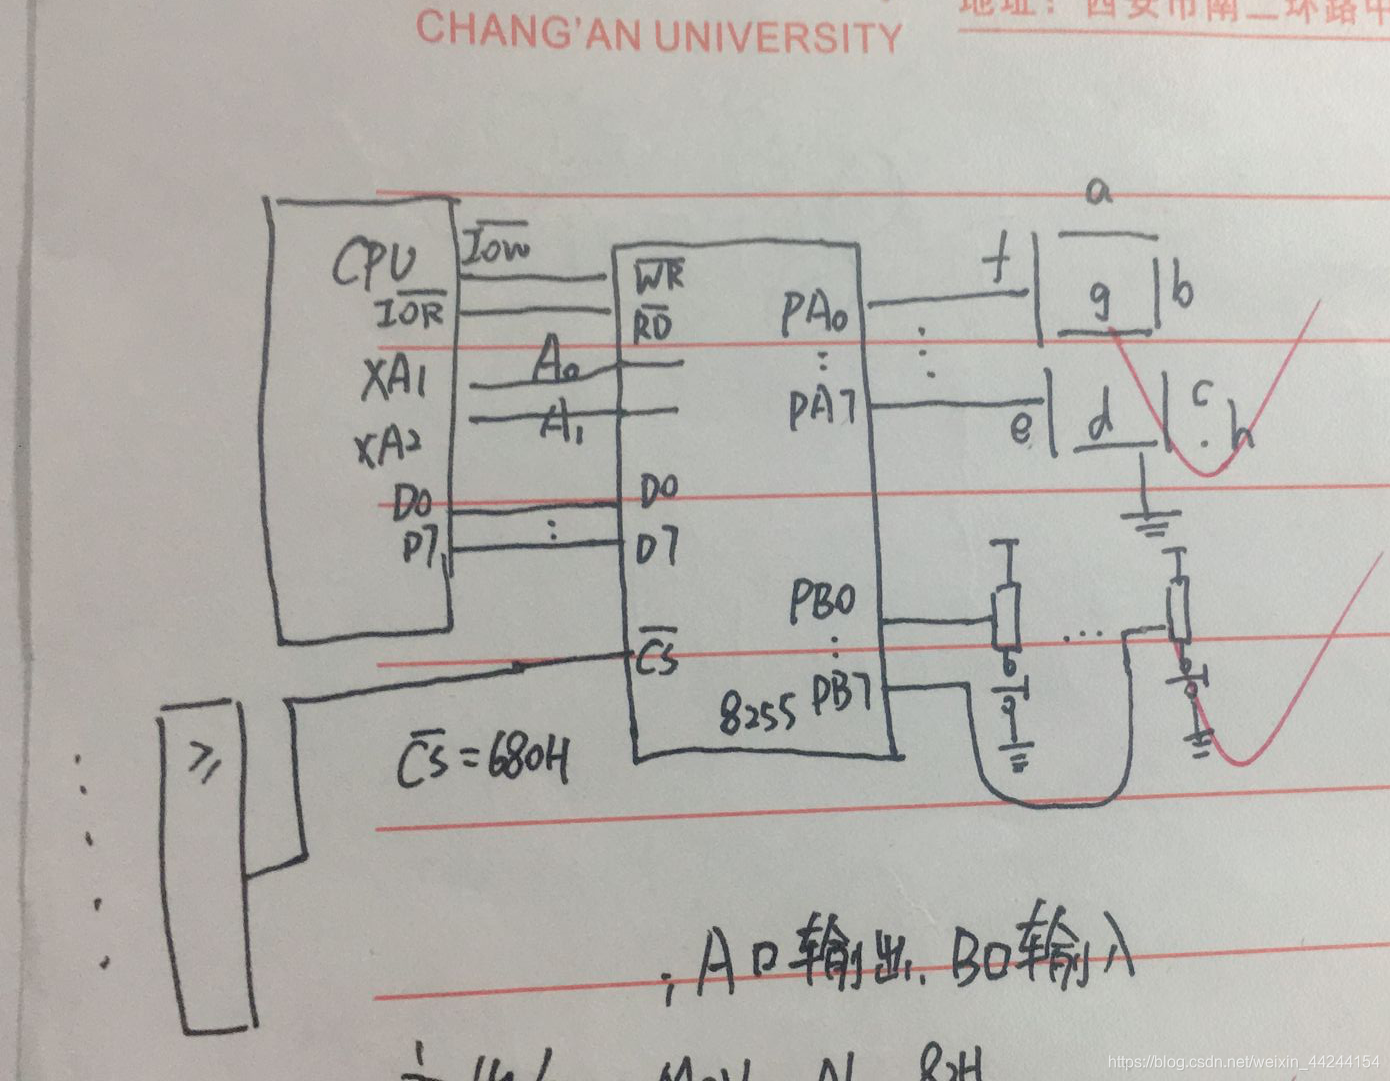 CHANG'AN UNIVERSITY
地址：西安市南二环路中
CPU
IOW
IOR
XA1
XA2
D0
D7
A0
A1
WR
RD
D0
D7
CS
8255
PA0
PA7
PB0
PB7
a
f
g
b
e
d
c
h
≥
CS=680H
;A口输出, B口输入
MOV AL, 82H
https://blog.csdn.net/weixin_44244154